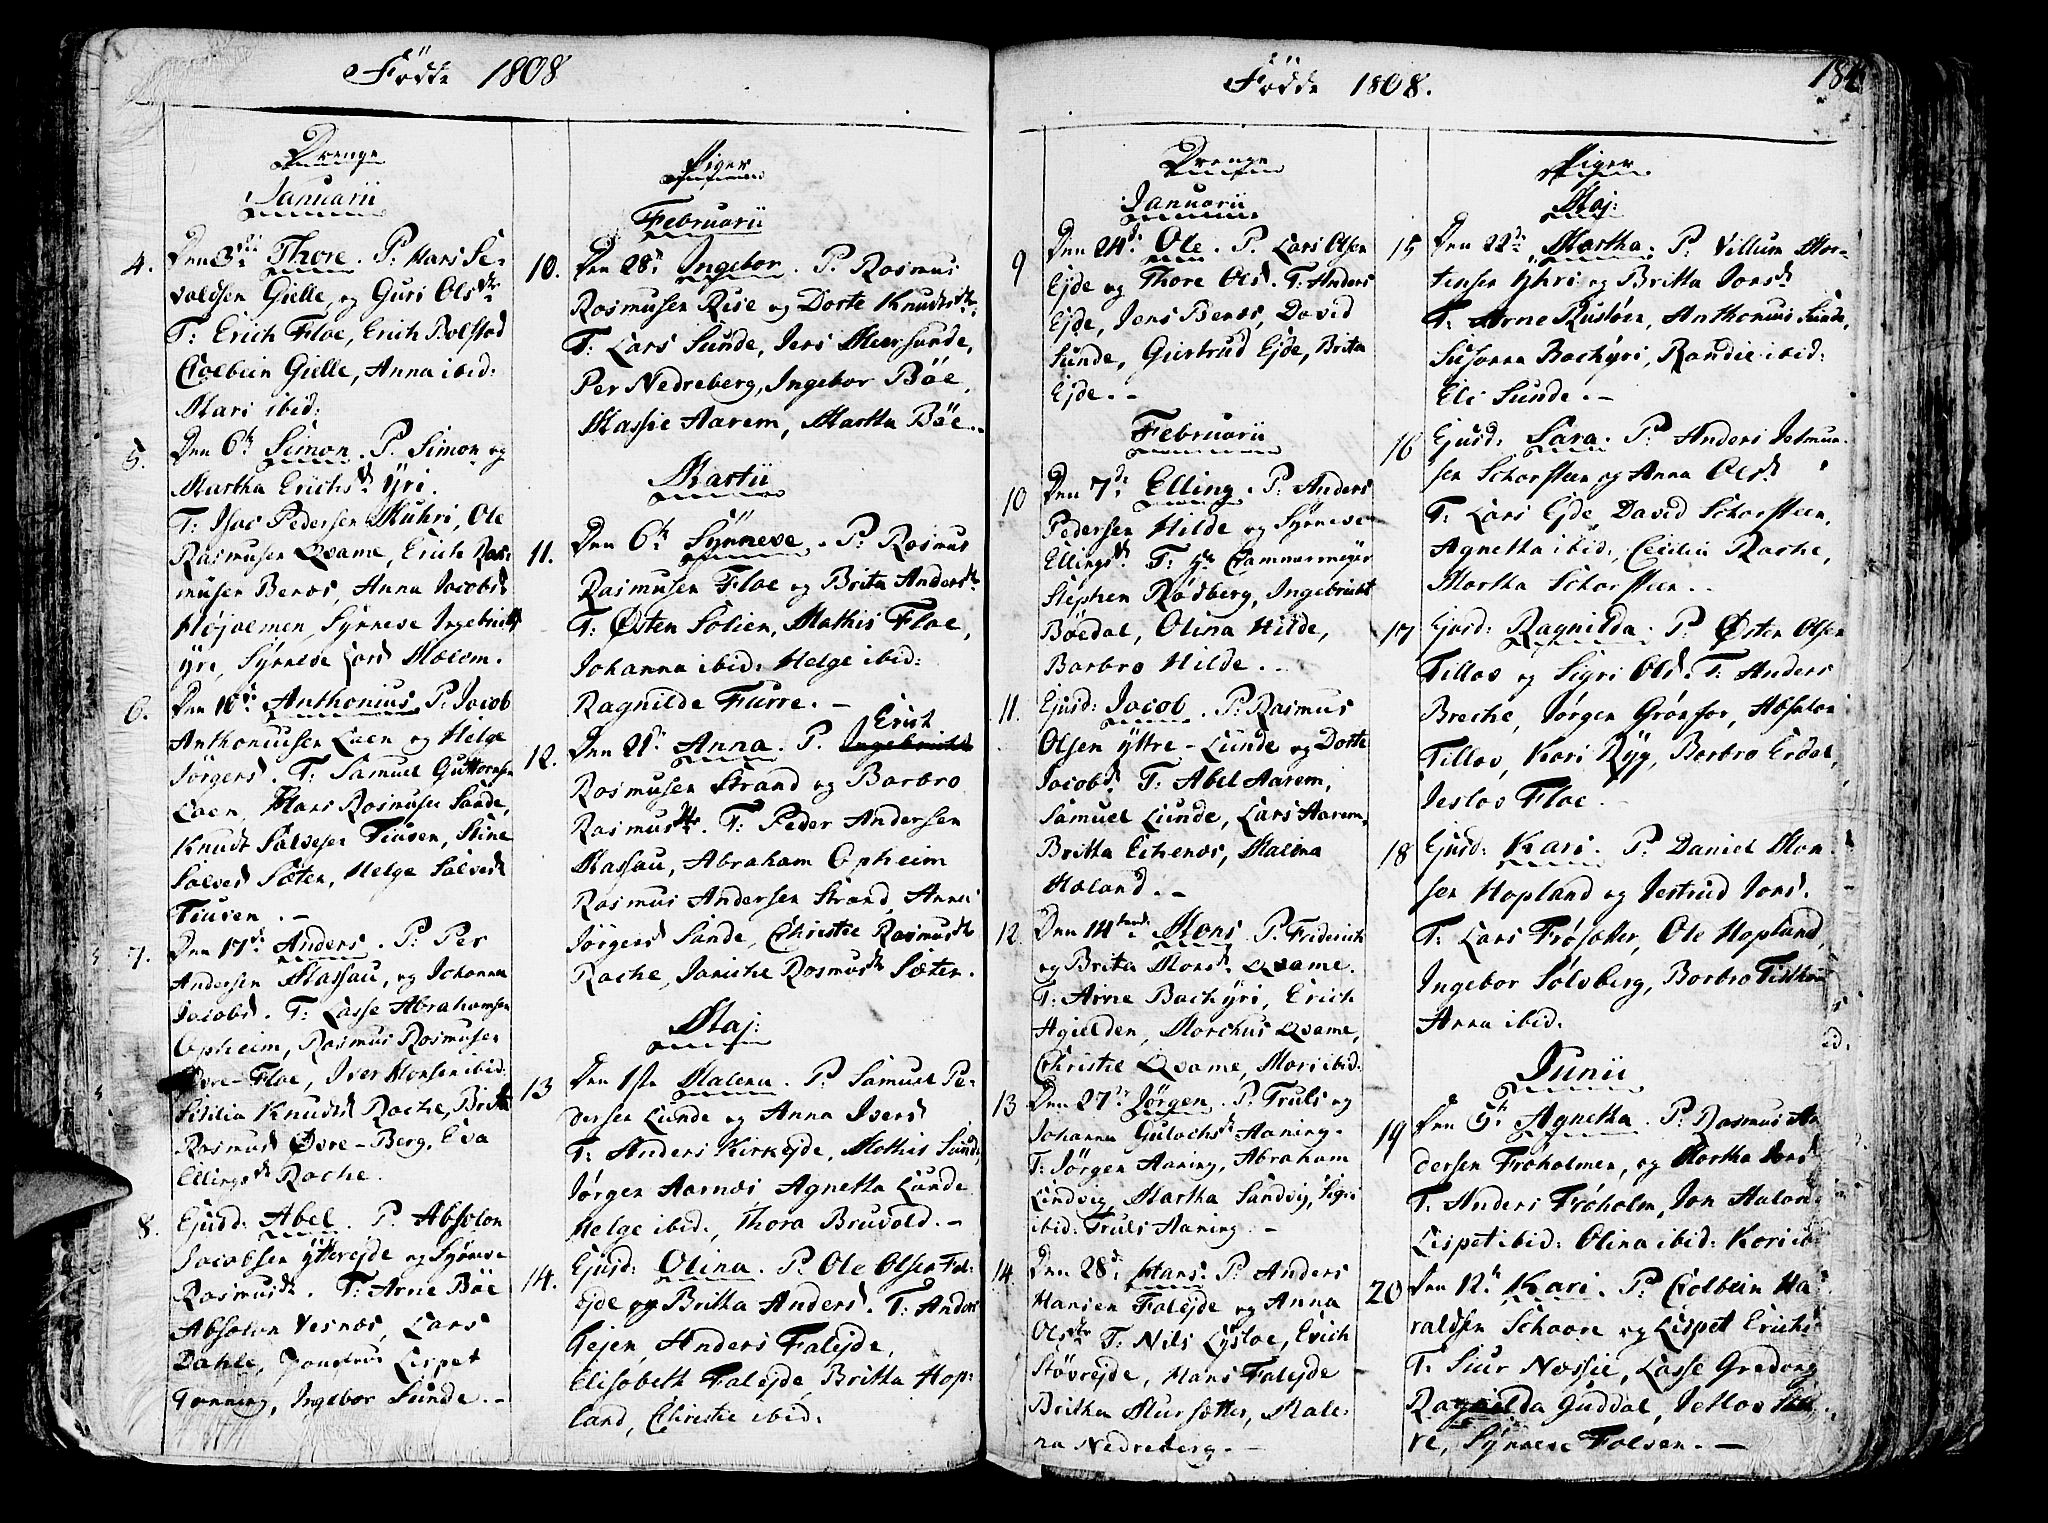 Fødde 1808
Drenge
Januarii
4. Den 3di Thore. P: Hans Se-
valdsen Gielle, og Guri Olsdtr
T: Erich Floe, Erich Bolstad
Colbein Gielle, Anna ibid:
Mari ibid:
5. Den 6te Simon. P. Simon og
Martha Erichsd. Yri.
T: Isac Pedersen Muhri, Ole
Rasmusen Qvame, Erich Ras-
musen Benes, Anna Jacobsd
Højolmen, Synneve Ingebricts
Yri, Synneve Larsd Molem.
6. Den 10de Anthonius P: Jacob
Anthoniusen Loen og Helge
Jørgensd. T: Samuel Guttormsen
Loen, Hans Rasmusen Sande,
Knudt Salvesen Tiusen, Stine
Salvesd Sæten, Helge Salvesd
Tiusen. -
7. Den 17de Anders. P: Per
Andersen Massau, og Johanna
Jacobsd. T: Lasse Abrahamsen
Opheim, Rasmus Rasmusen
Øvre-Floe, Iver Monsen ibid:
Sisilia Knudsd Rache, Brite
Rasmusd Øvre-Berg, Eva
Ellingsd Rache.
8. Ejusd: Abel. P: Absolon
Jacobsen Yttreejde og Synneve
Rasmusd. T: Arne Bøe
Absolon Vesnes, Lars
Dahle, Lispet
Tonning, Ingebor Sunde. -
Piger
Februarii
10. Den 28de Ingebor. P: Rasmus
Rasmusen Rise og Dorte Knudsdtr
T: Lars Sunde, Jens Meersunde,
Per Nedreberg, Ingebor Bøe,
Massie Aarem, Martha Bøe. -
Martii
11. Den 6te Synneve. P: Rasmus
Rasmusen Floe og Brita Andersd
T: Østen Solien, Mathis Floe,
Johanna ibid: Helge ibid:
Ragnilde Furre. -
Erich
12. Den 21de Anna. P. Ingebricht
Rasmusen Strand og Barbro
Rasmusdtr. T: Peder Andersen
Massau, Abraham Opheim
Rasmus Andersen Strand, Anna
Jørgensd Sande, Christie Rasmusd
Rache, Janiche Rasmusd Sæten.
Maj:
13 Den 1ste Malena. P: Samuel Pe-
dersen Lunde og Anna Iversd
T: Anders Kirkejde, Mathis Sunde,
Jørgen Aarnes, Agnetha Lunde
Helge ibid:, Thora Bruvold. -
14. Ejusd: Olina. P: Ole Olsen Fal-
ejde og Britha Andersd. T: Anders
Tejen, Anders Falejde,
Elisabeth Falejde, Britha Hop-
land, Christie ibid:
Fødde 1808.
184
Drenge
Januarii
9 Den 24de Ole. P. Lars Olsen
Ejde og Thore Olsd. T: Anders
Ejde, Jens Benes, David
Sunde, Giertrud Ejde, Brita
Ejde. -
Februarii
10 Den 7de Elling. P: Anders
Pedersen Hilde og Synneve
Ellingsd. T: Hr Cammermejer
Stephen Rødberg, Ingebricht
Bøedal, Olina Hilde,
Barbro Hilde. -
11. Ejusd: Jacob. P: Rasmus
Olsen Yttre-Lunde og Dorte
Jacobsd. T: Abel Aarem,
Samuel Lunde, Lars Aarem,
Britha Echenes, Malena
Holand. -
12. Den 14tende Mons. P. Friderich
og Brita Monsd. Qvame.
T: Arne Bachyri, Erich
Agielden, Morchus Qvame,
Christie Qvame, Mari ibid.
13 Den 27de Jørgen. P: Truls og
Johanna Gulachsd Aaning.
T: Jørgen Aaning, Abraham
Lindvig, Martha Sandvig, Sigri
ibid: Truls Aaning. -
14. Den 28de Hans. P: Anders
Hansen Falejde og Anna
Olsdtr T: Nils Lysloe, Erich
Støvrejde, Hans Falejde
Britha Mursetter, Male-
na Nedreberg. -
Piger
Maj:
15 Den 22de Martha. P: Villum Mor-
tensen Yhri og Britta Jonsd.
T: Arne Rustøen, Anthonius Sunde,
Susanna Bachyri, Randie ibid:
Eli Sunde. -
16 Ejusd: Sara. P: Anders Jetmun-
sen Schorsteen og Anna Olsd
T: Lars Ejde David Schorsteen,
Agnetha ibid:, Cecilia Rache,
Martha Schorsteen. -
17 Ejusd: Ragnilda. P: Østen Olsen
Tillos og Sigri Olsd. T: Anders
Breche, Jørgen Grønfor, Absolon
Tillos, Kari Ryg, Barbro Erdal,
Jeslos Floe. -
18 Ejusd: Kari. P: Daniel Mon-
sen Hopland og Jertrud Jonsd.
T: Lars Frøsetter, Ole Hopland,
Ingebor Solvberg, Barbro
Anna ibid.
Junii
19 Den 5te Agnetha. P: Rasmus An
dersen Frøholmen, og Martha Jonsd
T: Anders Frøholm, Jon Maloen
Lispet ibid: Olina ibid: Kari ib
20 Den 12te Kari. P: Colbein Ha
raldsen Schaare og Lispet Erichs
T: Siur Næssie, Lasse Gredung
Ragnilda Guddal, Jetlos
re, Synneve Folsen. -